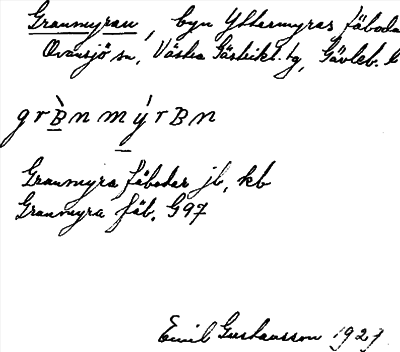 Granmyran, byn Yttermyras fäboda
Ovansjö sn, Västra Gästrikl. tg, Gävleb. l
grBnmyrBn
Granmyra fäbodar jb, kb
Granmyra fäb. G97
Emil Gustavsson 1927